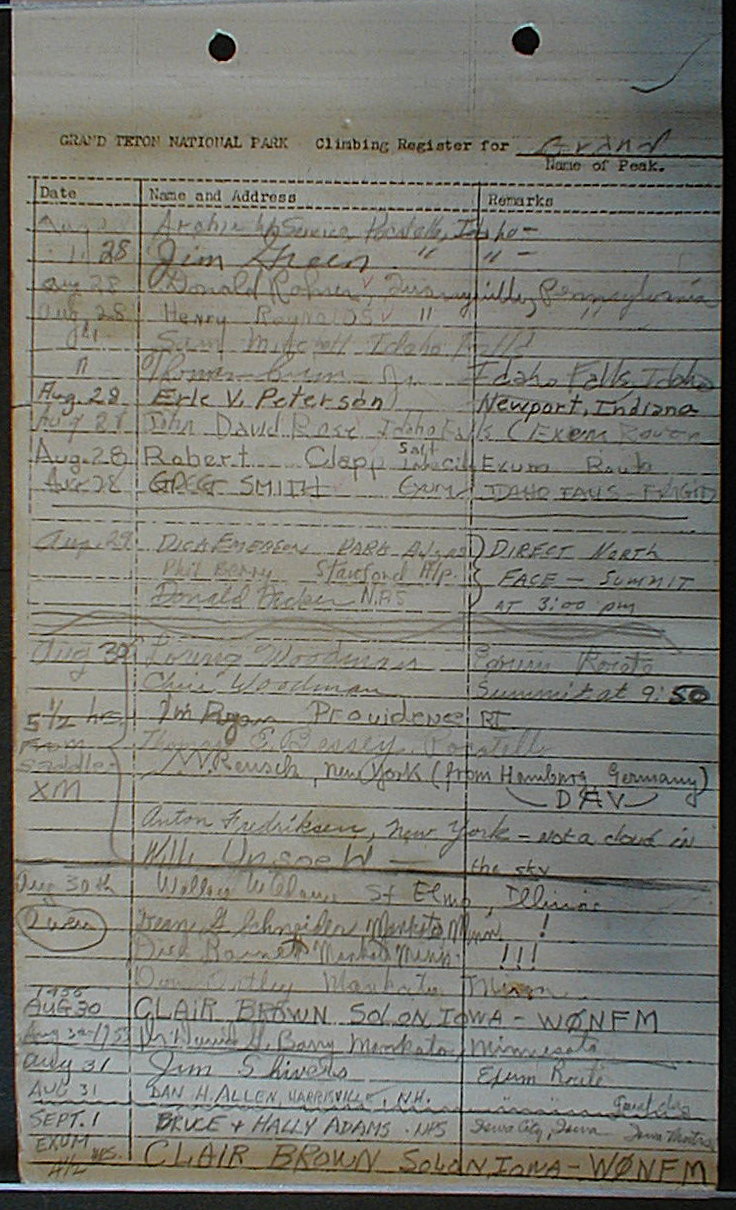 GRAND TETON NATIONAL PARK Climbing Register for Grand
Name of Peak.
Date Name and Address Remarks
Pocatello, Idaho -
" 28 Jim Green " " -
Aug 28 Donald Pennsylvania
Aug. 28 Henry " "
Sam Mitchell Idaho Falls
" Idaho Falls, Idaho
Aug. 28 Eric V. Peterson Newport, Indiana
Aug 28 John David Rose Idaho Falls (Exum Route
Aug. 28 Robert Clapp Salt Exum Route
Aug 28 GREGG SMITH Exum IDAHO FALLS - FRIGID
Aug. 29 DICK EMERSON PARK DIRECT NORTH
Phil Berry Stanford FACE - SUMMIT
Donald Decker NPS AT 3:00 pm
Aug 30 Woodman Exum Route
Chris Woodman Summit at 9:50
5 1/2 hr. Jim Ryan PROVIDENCE RI
From Thomas E. Bessey Pocatello
saddle Reusch, New York (from Hamburg Germany)
XM DAV
Anton Fredriksen, New York - not a cloud in
Willi Unsoeld - the sky
Aug 30th Wallace St Elmo, Illinois
Owen Dean G Schneider Mankato Minn. !
Dick Mankato Minn. !!!
Don Mankato Minn.
1955
AUG 30 CLAIR BROWN SOLON IOWA - WØNFM
Aug 30 1955 G. Barry Mankato, Minnesota
Aug 31 Jim Shivers Exum Route
AUG 31 DAN H. ALLEN, HARRISVILLE, N.H.
SEPT. 1 BRUCE + HALLY ADAMS. NPS Iowa City, Iowa
EXUM
CLAIR BROWN SOLON, IOWA - WØNFM